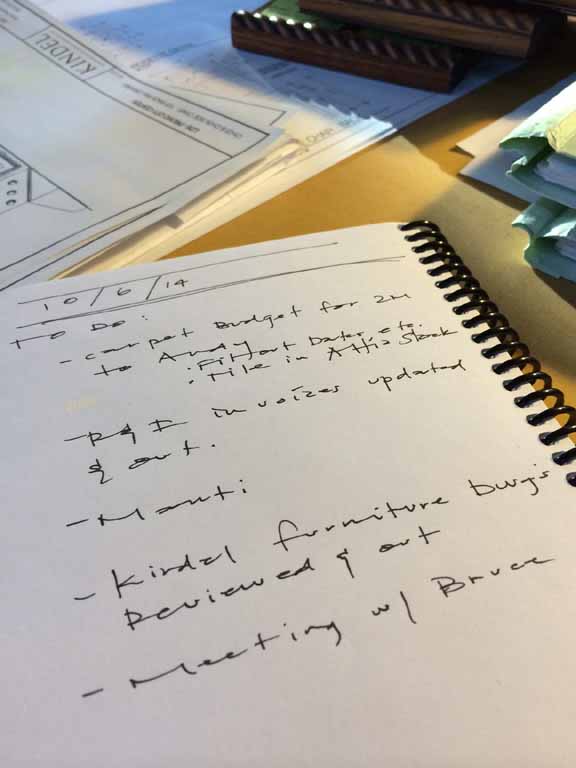 KINDEL
10/6/14
To Do:
- Carpet Budget for 2H
to Andy
: Fitout Dates, etc.
: Tile in Attic Stock
- P&I invoizes updated
& out.
- Manti
- Kindel furniture dwg's
Reviewed & out
- Meeting w/ Bruce